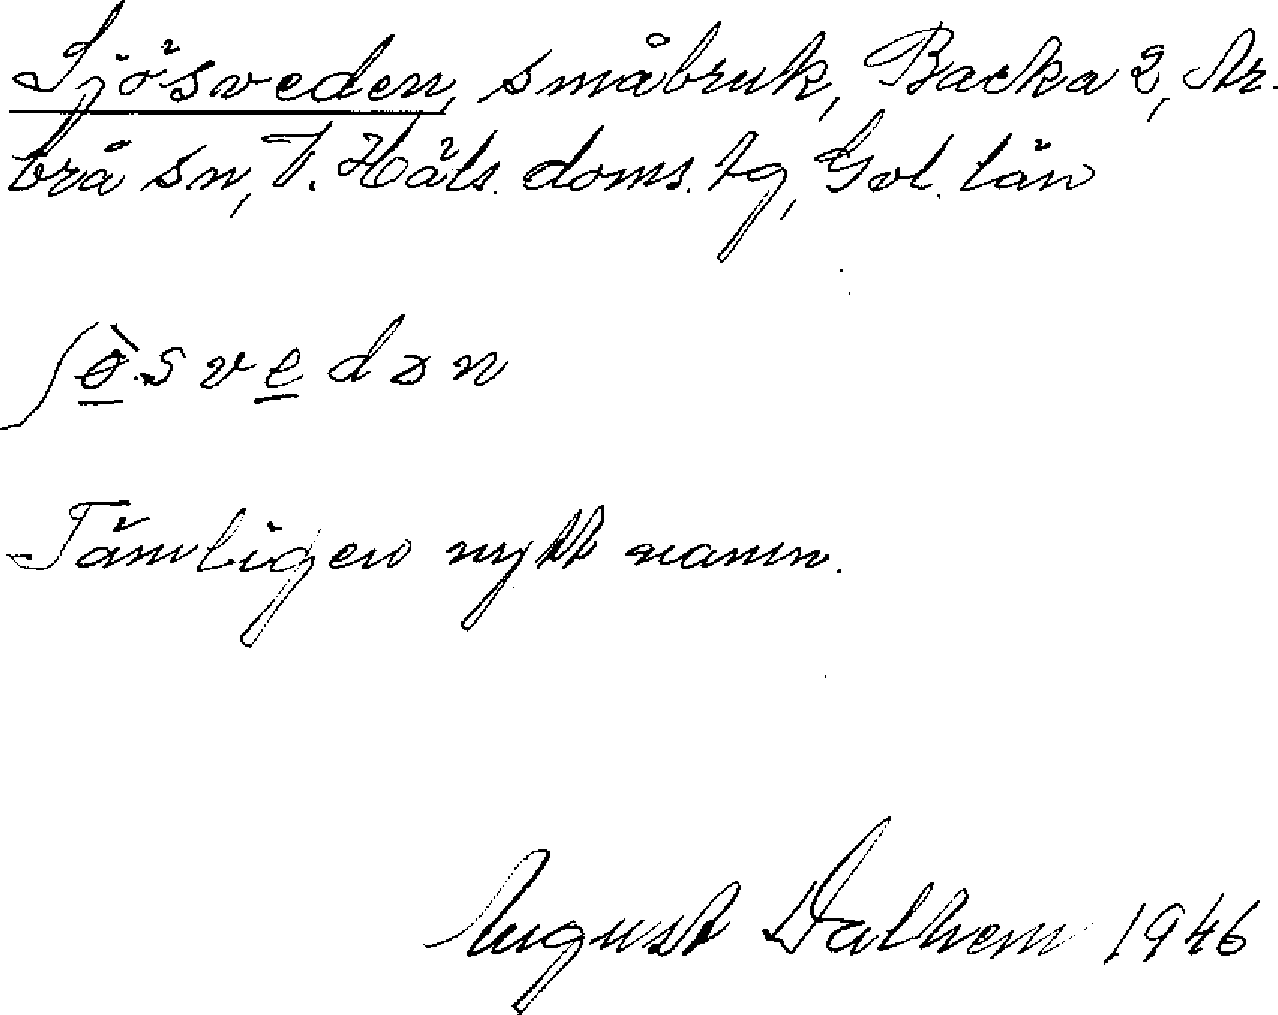 Sjösveden, småbruk, Backa 2, Ar-
brå sn, V. Häls. doms. tg, Gvl. län
ʃö̀svedən
Tämligen nytt namn.
August Dalhem 1946